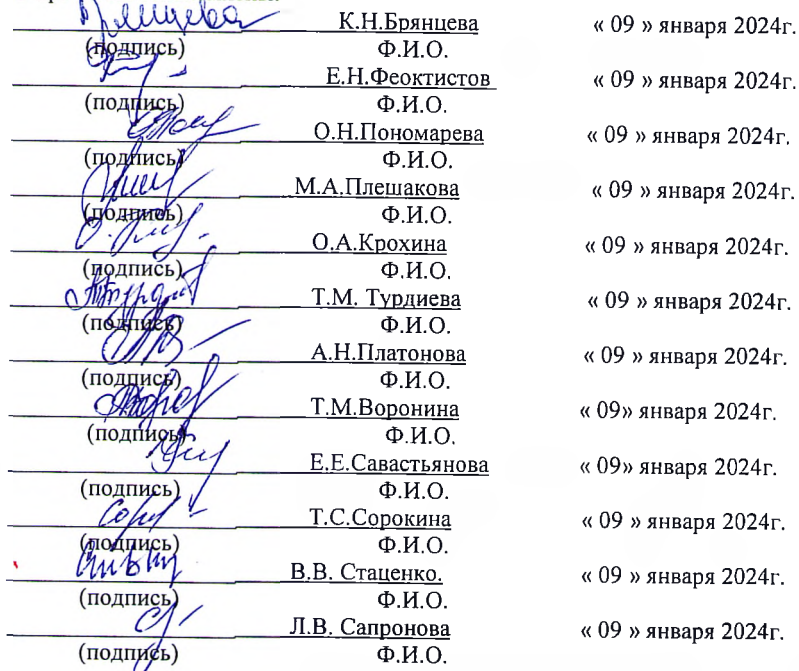 К.Н.Брянцева « 09 » января 2024г.
(подпись) Ф.И.О.
Е.Н.Феоктистов « 09 » января 2024г.
(подпись) Ф.И.О.
О.Н.Пономарева « 09 » января 2024г.
(подпись) Ф.И.О.
М.А.Плешакова « 09 » января 2024г.
(подпись) Ф.И.О.
О.А.Крохина « 09 » января 2024г.
(подпись) Ф.И.О.
Т.М. Турдиева « 09 » января 2024г.
(подпись) Ф.И.О.
А.Н.Платонова « 09 » января 2024г.
(подпись) Ф.И.О.
Т.М.Воронина « 09» января 2024г.
(подпись) Ф.И.О.
Е.Е.Савастьянова « 09» января 2024г.
(подпись) Ф.И.О.
Т.С.Сорокина « 09 » января 2024г.
(подпись) Ф.И.О.
В.В. Стаценко. « 09 » января 2024г.
(подпись) Ф.И.О.
Л.В. Сапронова « 09 » января 2024г.
(подпись) Ф.И.О.